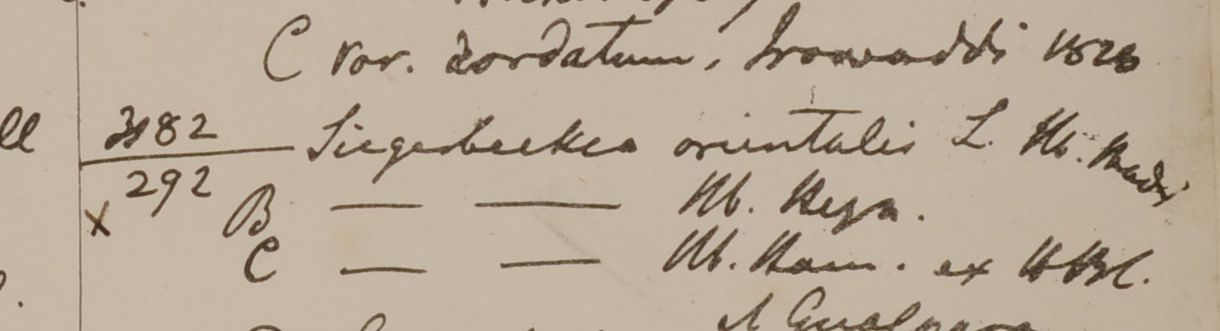 C var. cordatum, Irawaddi 1826
ll 3182 Siegesbeckea orientalis L. Hb. Madr
292
x B — — Hb. Heyn.
C — — Hb. Ham. ex HBC.
& Gualpara